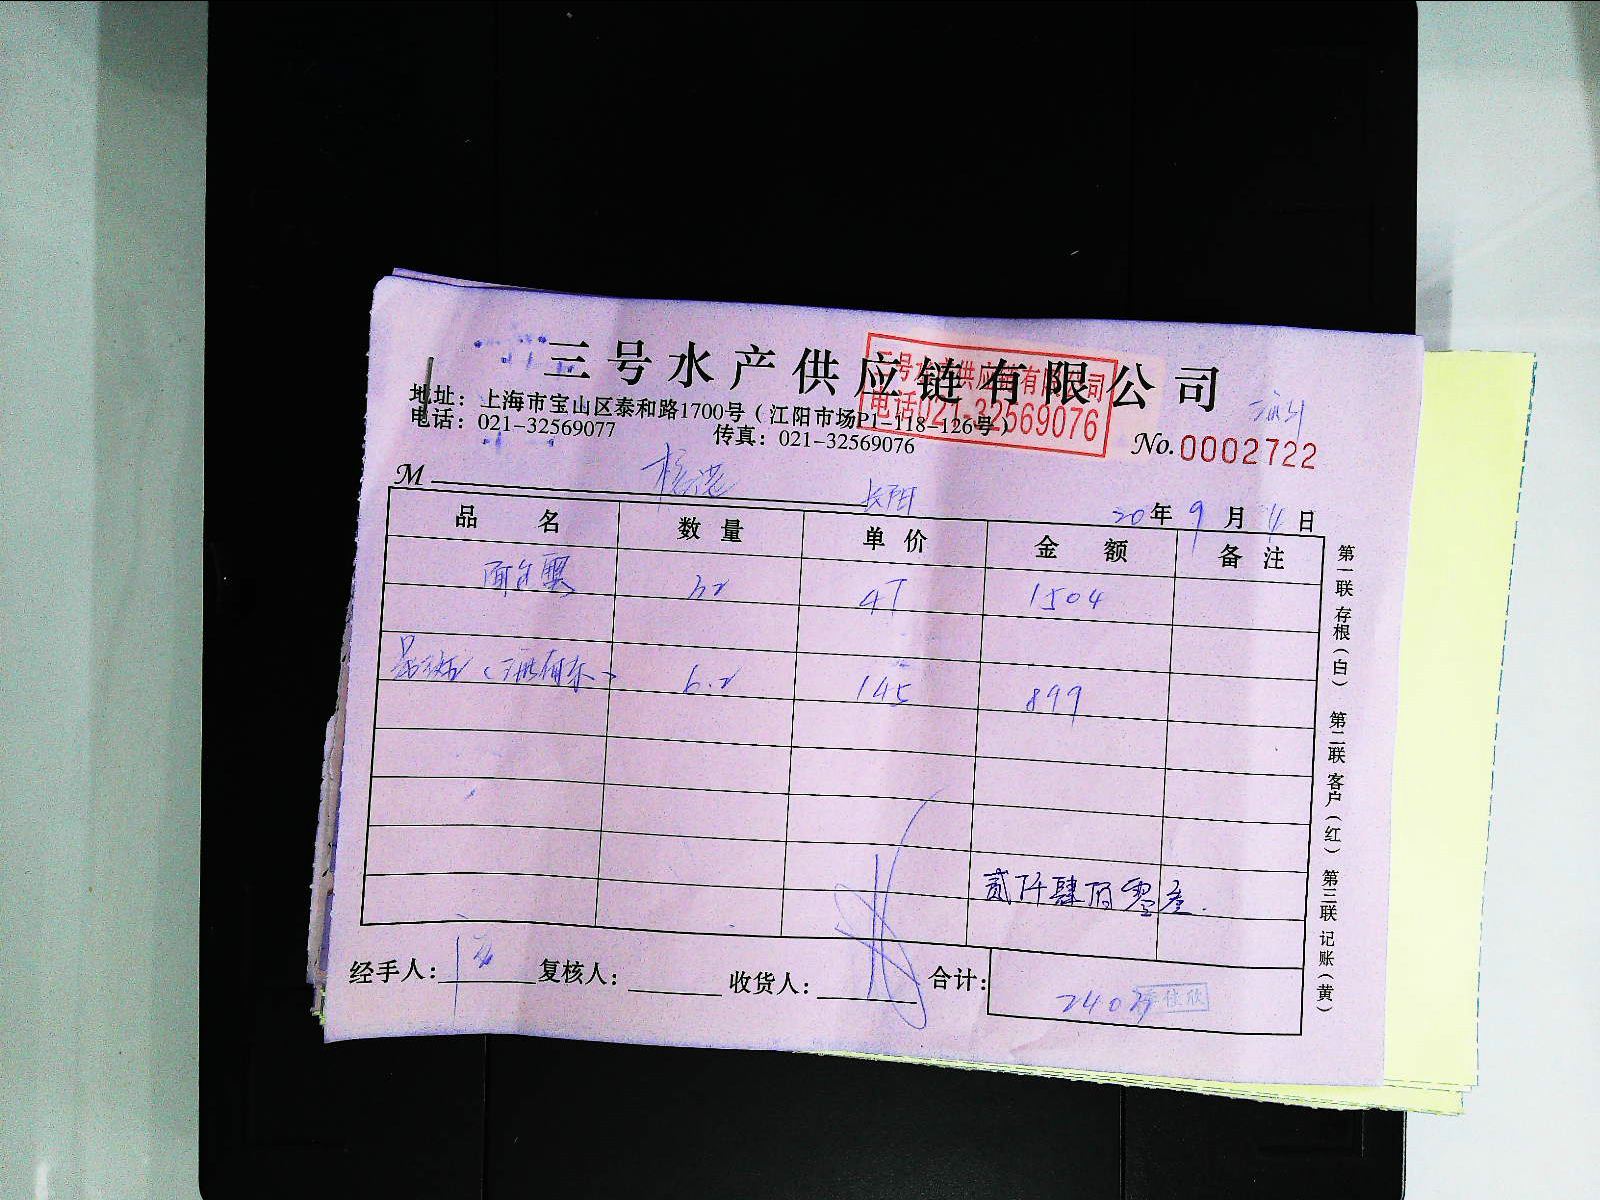 三号水产供应链有限公司
三号水产供应链有限公司
电话021-32569076
地址：上海市宝山区泰和路1700号（江阳市场P1-118-126号）
电话：021-32569077 传真：021-32569076
No.0002722
M 长阳
20年9月4日
品名 数量 单价 金额 备注
32 47 1504
6.2 145 899
贰仟肆佰零叁.
经手人： 复核人： 收货人： 合计： 2403
第一联存根（白） 第二联客户（红） 第三联记账（黄）